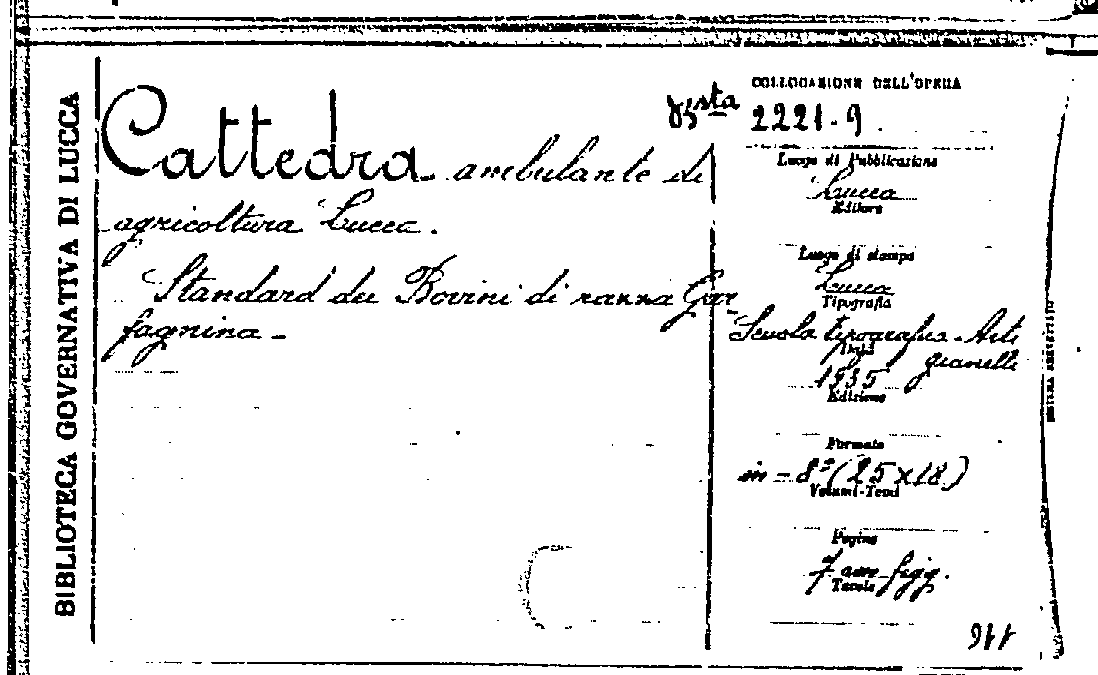 BIBLIOTECA GOVERNATIVA DI LUCCA
Cattedra ambulante di
agricoltura Lucca.
Standard dei Bovini di razza Gar-
fagnina -
bista
COLLOCAZIONE DELL'OPERA
2221-9
Luogo di Pubblicazione
Lucca
Editore
Luogo di stampa
Lucca
Tipografia
Scuola tipografica Arti
gianelli
Data
1935
Edizione
Formato
in-8º (25x18)
Volumi-Tomi
Pagine
7 con figg.
Tavole